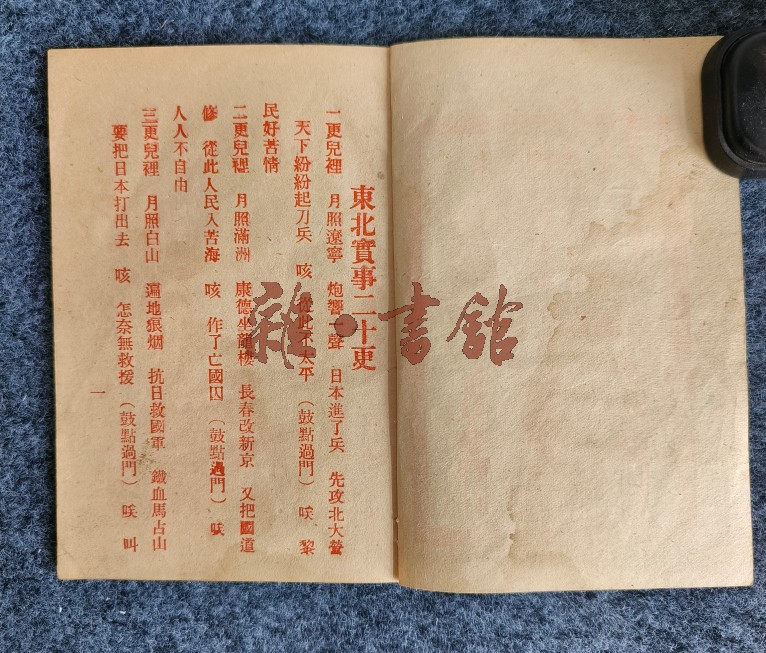 東北實事二十更
一更兒裡 月照遼寧 炮響一聲 日本進了兵 先攻北大營
天下紛紛起刀兵 咳 從此不太平 (鼓點過門) 咳 黎
民好苦情
二更兒裡 月照滿洲 康德坐龍樓 長春改新京 又把國道
修 從此人民入苦海 咳 作了亡國囚 (鼓點過門) 咳
人人不自由
三更兒裡 月照白山 遍地狼烟 抗日救國軍 鐵血馬占山
要把日本打出去 咳 怎奈無救援 (鼓點過門) 咳 叫
一
雜·書舘